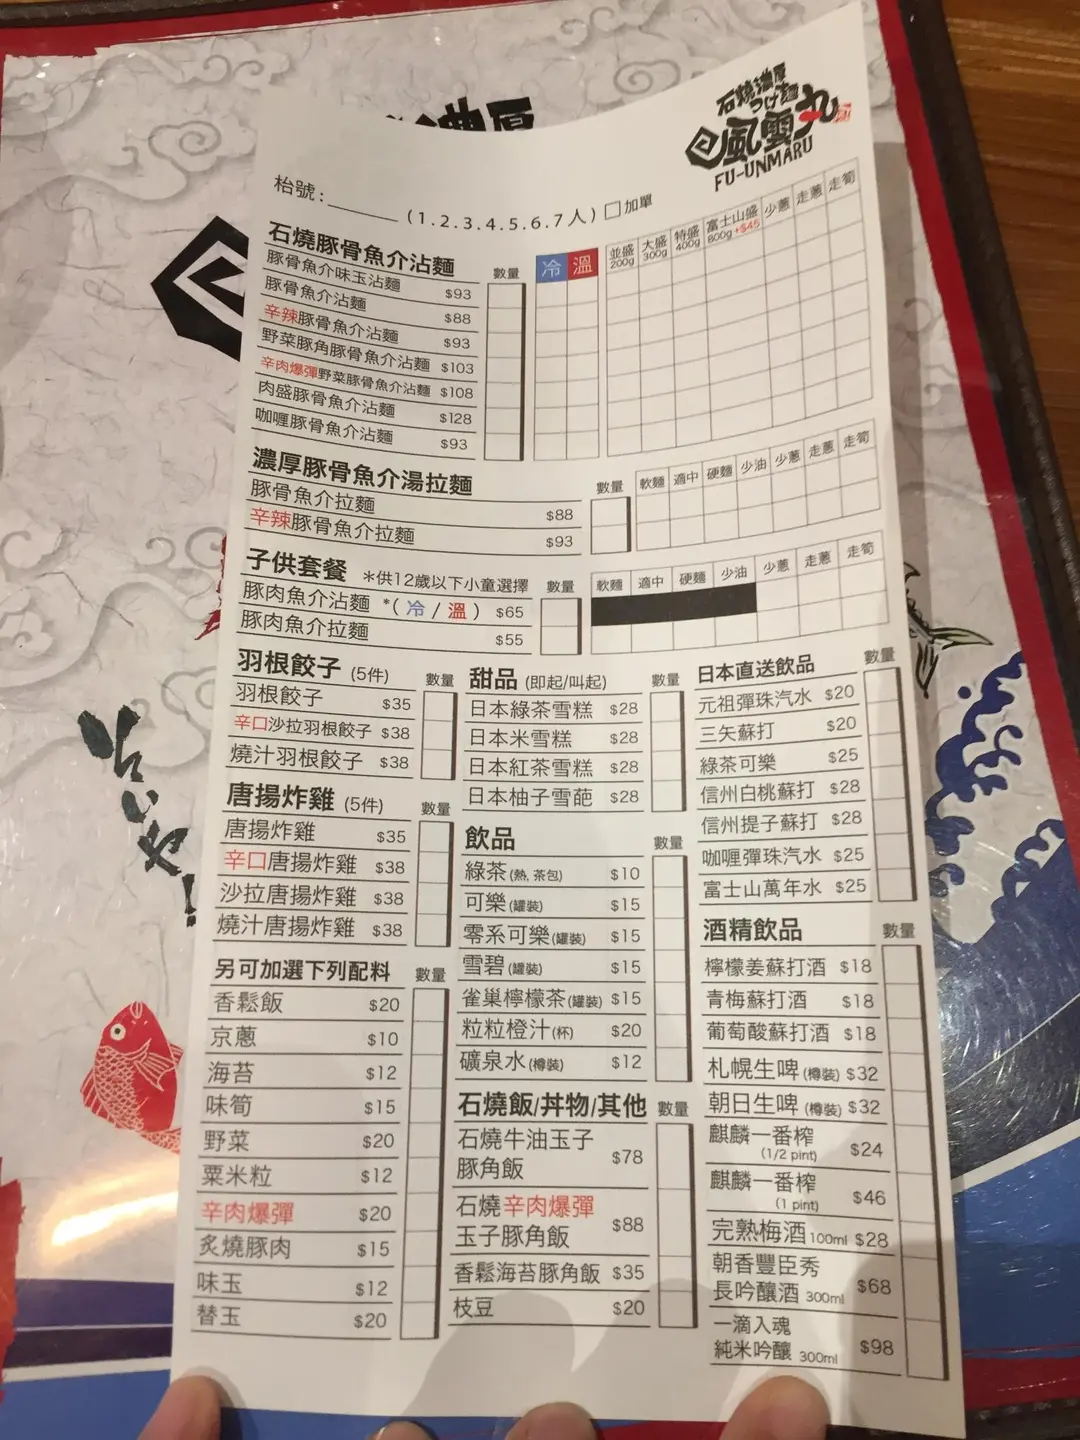 石燒濃厚
つけ麺
風雲丸
FU-UNMARU
枱號：______ (1.2.3.4.5.6.7人) □加單
石燒豚骨魚介沾麵 數量 冷 溫 並盛200g 大盛300g 特盛400g 富士山盛800g +$45 少蔥 走蔥 走筍
豚骨魚介味玉沾麵 $93
豚骨魚介沾麵 $88
辛辣豚骨魚介沾麵 $93
野菜豚角豚骨魚介沾麵 $103
辛肉爆彈野菜豚骨魚介沾麵 $108
肉盛豚骨魚介沾麵 $128
咖喱豚骨魚介沾麵 $93
濃厚豚骨魚介湯拉麵 數量 軟麵 適中 硬麵 少油 少蔥 走蔥 走筍
豚骨魚介拉麵 $88
辛辣豚骨魚介拉麵 $93
子供套餐 *供12歲以下小童選擇 數量 軟麵 適中 硬麵 少油 少蔥 走蔥 走筍
豚肉魚介沾麵 *(冷/溫) $65
豚肉魚介拉麵 $55
羽根餃子 (5件) 數量
羽根餃子 $35
辛口沙拉羽根餃子 $38
燒汁羽根餃子 $38
唐揚炸雞 (5件) 數量
唐揚炸雞 $35
辛口唐揚炸雞 $38
沙拉唐揚炸雞 $38
燒汁唐揚炸雞 $38
另可加選下列配料 數量
香鬆飯 $20
京蔥 $10
海苔 $12
味筍 $15
野菜 $20
粟米粒 $12
辛肉爆彈 $20
炙燒豚肉 $15
味玉 $12
替玉 $20
甜品 (即起/叫起) 數量
日本綠茶雪糕 $28
日本米雪糕 $28
日本紅茶雪糕 $28
日本柚子雪葩 $28
飲品 數量
綠茶(熱,茶包) $10
可樂(罐裝) $15
零系可樂(罐裝) $15
雪碧(罐裝) $15
雀巢檸檬茶(罐裝) $15
粒粒橙汁(杯) $20
礦泉水(樽裝) $12
石燒飯/丼物/其他 數量
石燒牛油玉子
豚角飯 $78
石燒辛肉爆彈
玉子豚角飯 $88
香鬆海苔豚角飯 $35
枝豆 $20
日本直送飲品 數量
元祖彈珠汽水 $20
三矢蘇打 $20
綠茶可樂 $25
信州白桃蘇打 $28
信州提子蘇打 $28
咖喱彈珠汽水 $25
富士山萬年水 $25
酒精飲品 數量
檸檬姜蘇打酒 $18
青梅蘇打酒 $18
葡萄酸蘇打酒 $18
札幌生啤(樽裝) $32
朝日生啤(樽裝) $32
麒麟一番榨
(1/2 pint) $24
麒麟一番榨
(1 pint) $46
完熟梅酒100ml $28
朝香豐臣秀
長吟釀酒 300ml $68
一滴入魂
純米吟釀 300ml $98